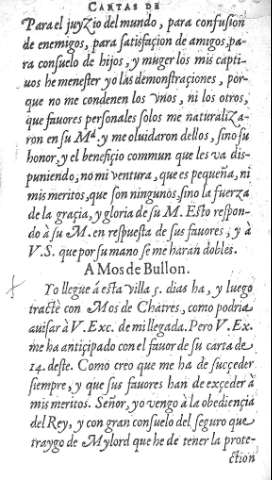 CARTAS DE
Para el juyzio del mundo, para confusion
de enemigos, para satisfaçion de amigos, pa-
ra consuelo de hijos, y muger los mis capti-
uos he menester yo las demonstraçiones, por-
que no me condenen los vnos, ni los otros,
que fauores personales solos me naturaliza-
ron en su Md. y me oluidaron dellos, sino su
honor, y el benefiçio commun que les va dis-
puniendo, no mi ventura, que es pequeña, ni
mis meritos, que son ningunos, sino la fuerza
de la graçia, y gloria de su M. Esto respon-
do à su M. en respuesta de sus fauores, y à
V.S. que por su mano se me haran dobles.
A Mos de Bullon.
Yo llegue à esta villa 5. dias ha, y luego
tractè con Mos de Chatres, como podria
auisar à V. Exc. de mi llegada. Pero V. Ex.
me ha antiçipado con el fauor de su carta de
14. deste. Como creo que me ha de sucçeder
siempre, y que sus fauores han de exçeder à
mis meritos. Señor, yo vengo à la obediençia
del Rey, y con gran consuelo del seguro que
traygo de Mylord que he de tener la prote-
ction